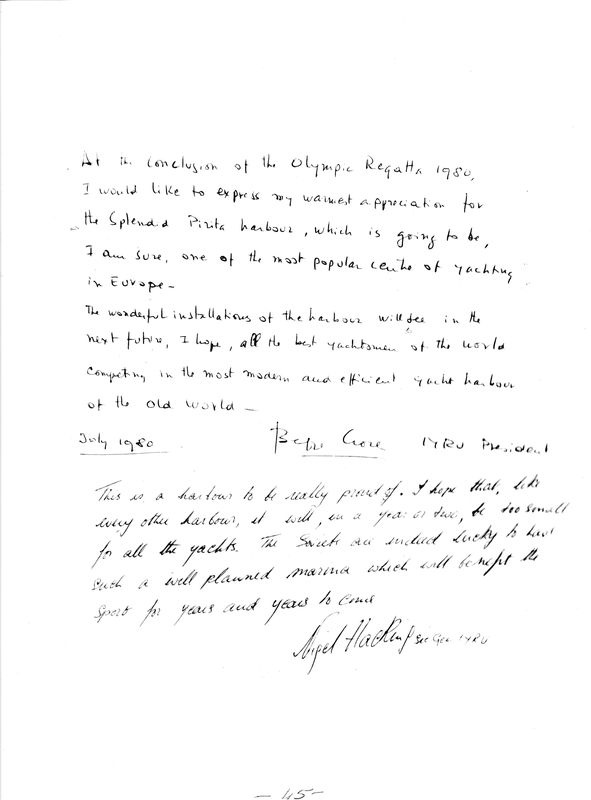 At the Conclusion of the Olympic Regatta 1980,
I would like to express my warmest appreciation for
the Splendid Pirita harbour, which is going to be,
I am sure, one of the most popular centre of yachting
in Europe-
The wonderful installations of the harbour will see in the
next future, I hope, all the best yachtsmen of the world
competing in the most modern and efficient yacht harbour
of the old world -
July 1980 Beppe Croce IYRU President
This is a harbour to be really proud of. I hope that, like
every other harbour, it will, in a year or two, be too small
for all the yachts. The Soviets are indeed lucky to have
such a well planned marina which will benefit the
sport for years and years to come
Nigel Hacking Sec Gen IYRU
- 45 -